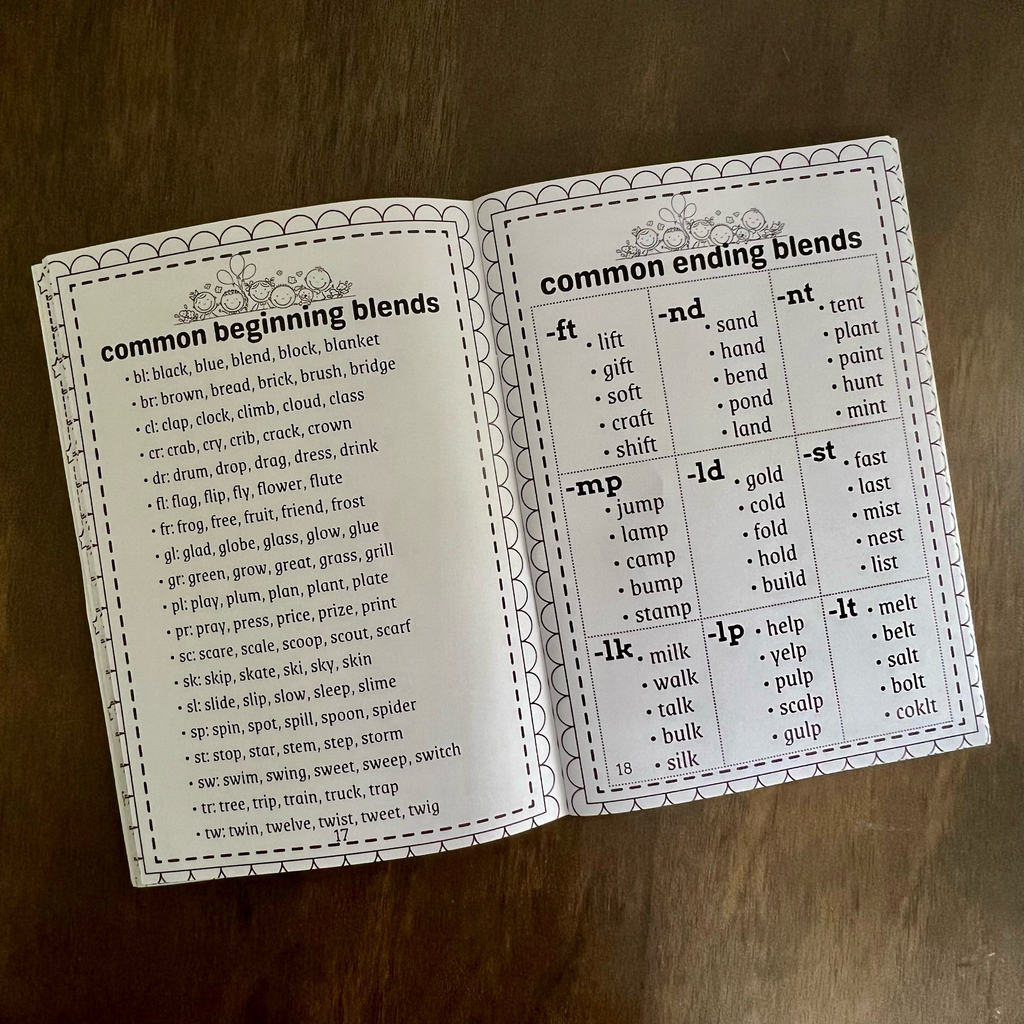 common beginning blends
• bl: black, blue, blend, block, blanket
• br: brown, bread, brick, brush, bridge
• cl: clap, clock, climb, cloud, class
• cr: crab, cry, crib, crack, crown
• dr: drum, drop, drag, dress, drink
• fl: flag, flip, fly, flower, flute
• fr: frog, free, fruit, friend, frost
• gl: glad, globe, glass, glow, glue
• gr: green, grow, great, grass, grill
• pl: play, plum, plan, plant, plate
• pr: pray, press, price, prize, print
• sc: scare, scale, scoop, scout, scarf
• sk: skip, skate, ski, sky, skin
• sl: slide, slip, slow, sleep, slime
• sp: spin, spot, spill, spoon, spider
• st: stop, star, stem, step, storm
• sw: swim, swing, sweet, sweep, switch
• tr: tree, trip, train, truck, trap
• tw: twin, twelve, twist, tweet, twig
17
common ending blends
-ft
• lift
• gift
• soft
• craft
• shift
-nd
• sand
• hand
• bend
• pond
• land
-nt
• tent
• plant
• paint
• hunt
• mint
-mp
• jump
• lamp
• camp
• bump
• stamp
-ld
• gold
• cold
• fold
• hold
• build
-st
• fast
• last
• mist
• nest
• list
-lk
• milk
• walk
• talk
• bulk
• silk
-lp
• help
• yelp
• pulp
• scalp
• gulp
-lt
• melt
• belt
• salt
• bolt
• coklt
18